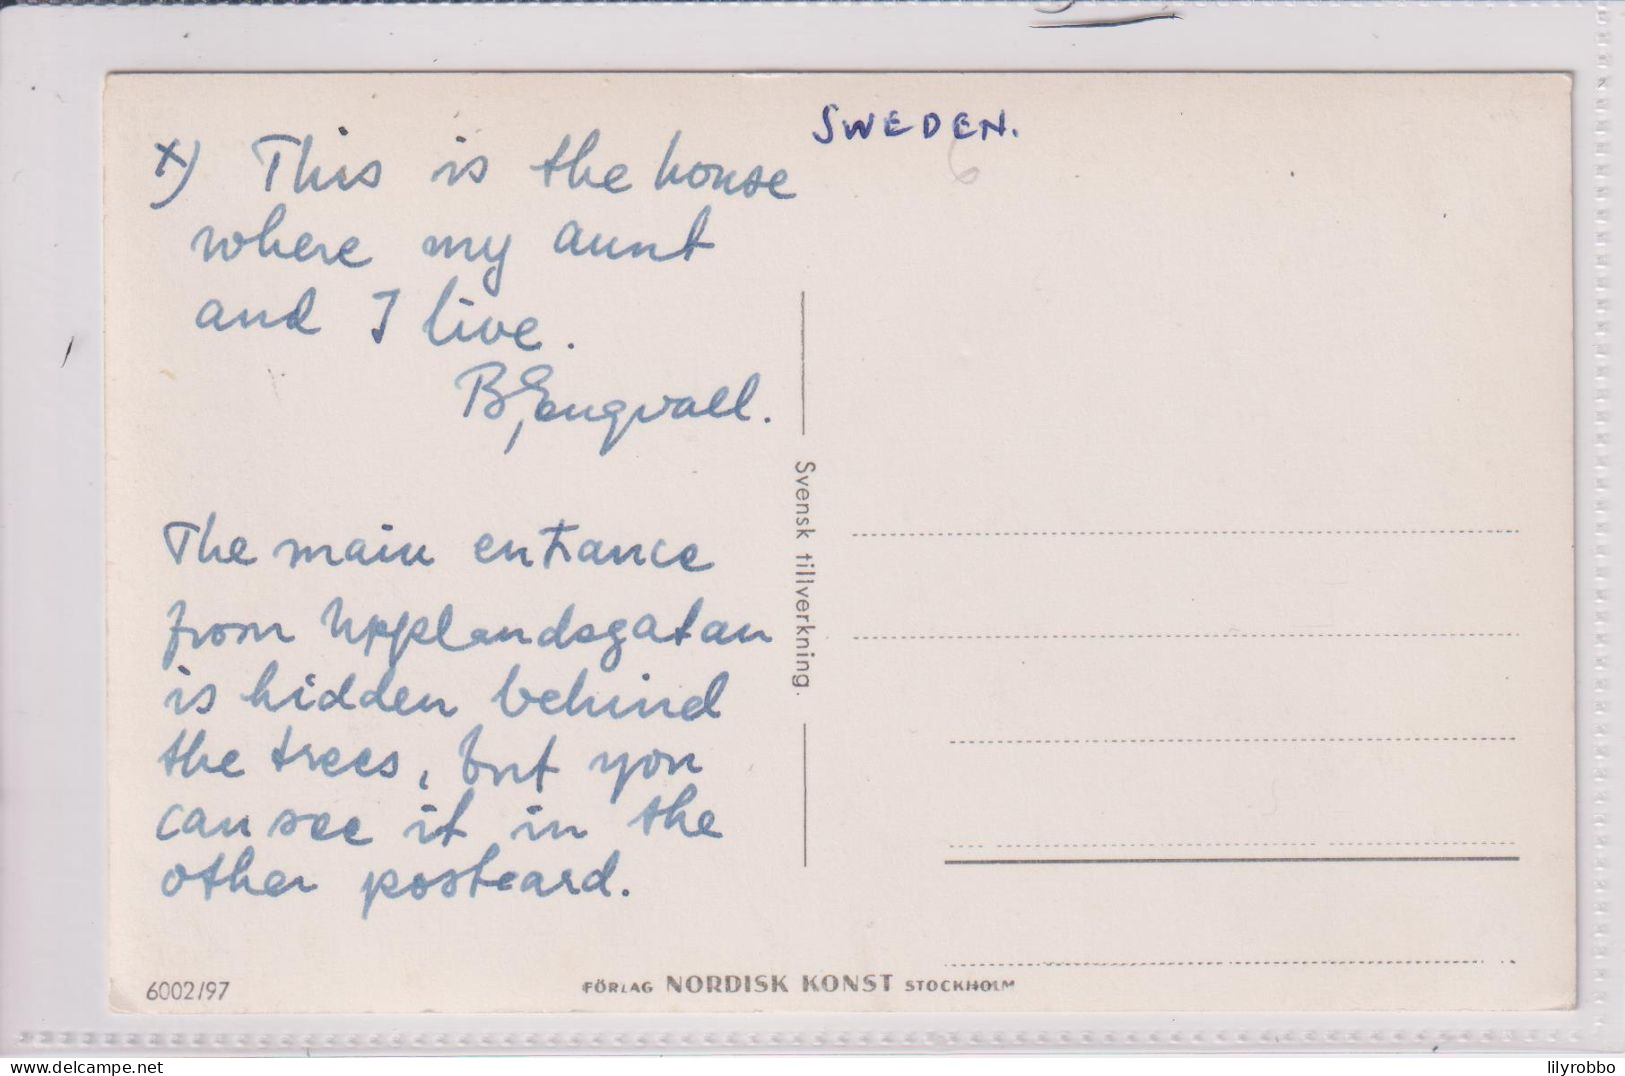 SWEDEN.
6
x) This is the house
where my aunt
and I live.
B, Engvall.
The main entrance
from Upplandsgatan
is hidden behind
the trees, but you
can see it in the
other postcard.
Svensk tillverkning.
6002/97
FÖRLAG NORDISK KONST STOCKHOLM
lilyrobbo